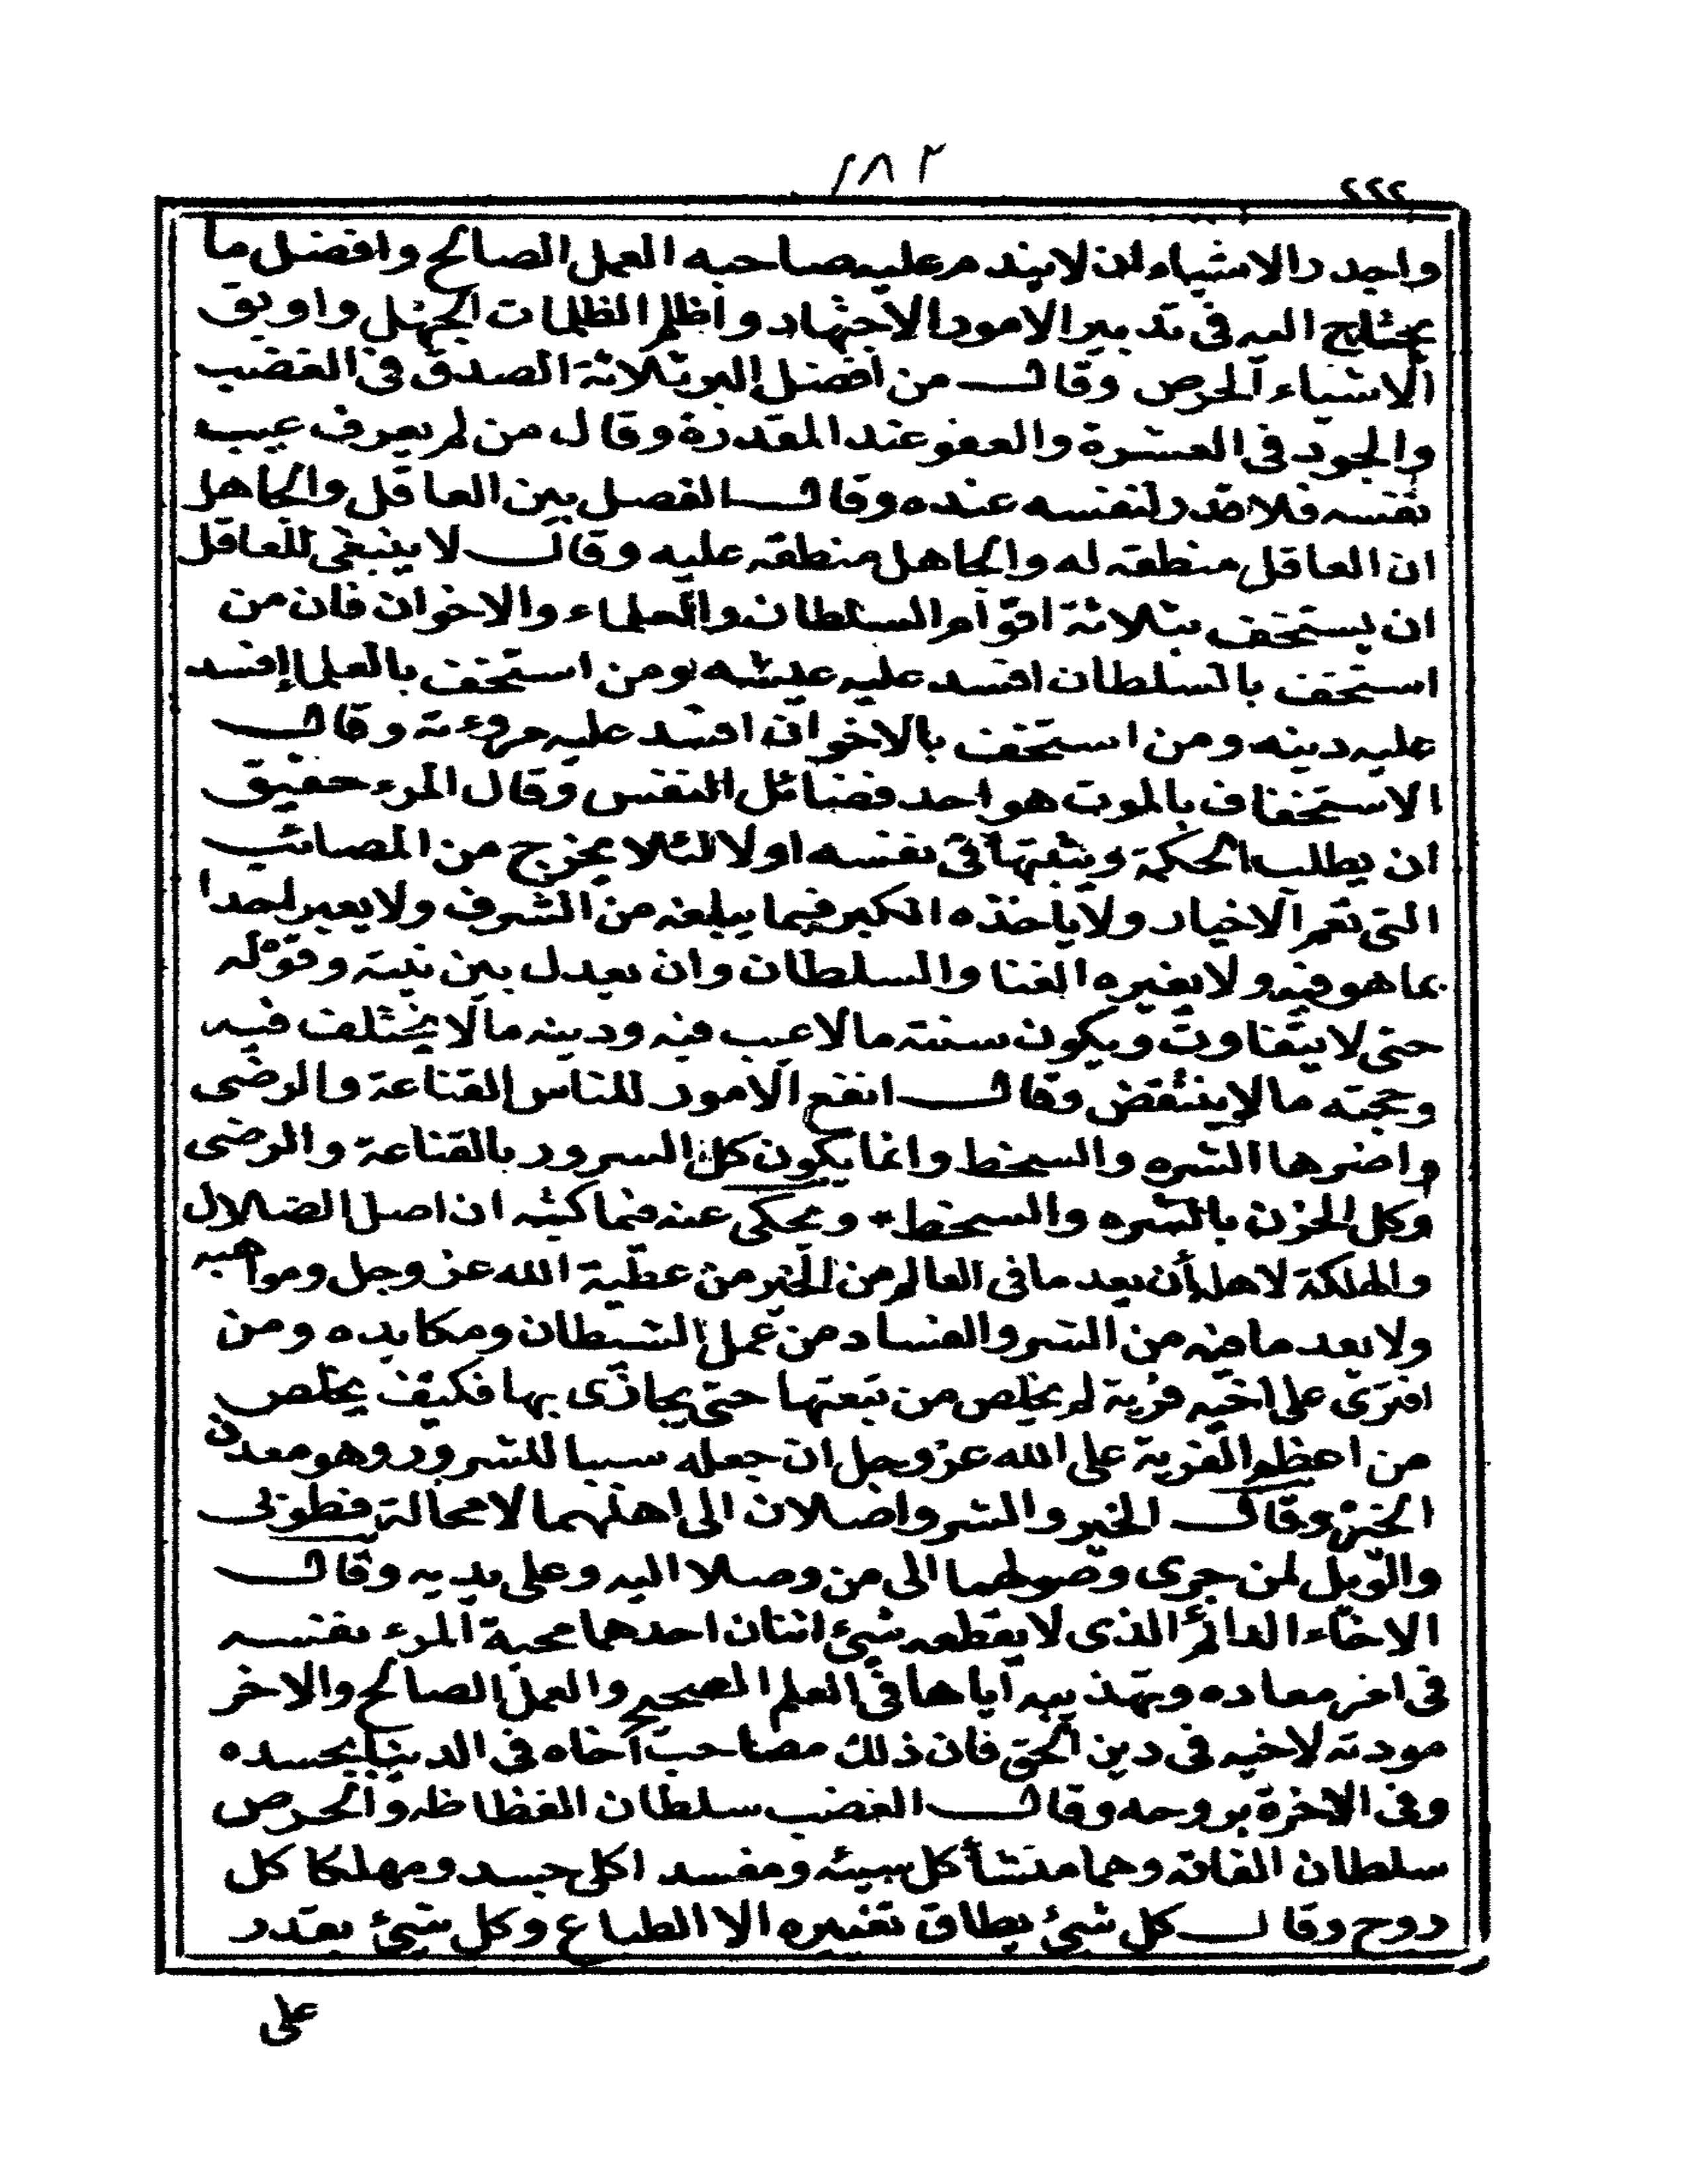 ١٨٢
٢٢٢
واجدر الاشياء ان لا يندم عليه صاحبه العمل الصالح وافضل ما
يحتاج اليه فى تدبير الامور الاجتهاد واظلم الظلمات الجهل واوبق
الاشياء الحرص وقال من افضل البر ثلاثة الصدق فى الغضب
والجود فى العسرة والعفو عند المقدرة وقال من لم يعرف عيب
نفسه فلا قدر لنفسه عنده وقال الفصل بين العاقل والجاهل
ان العاقل منطقه له والجاهل منطقه عليه وقال لا ينبغى للعاقل
ان يستخف بثلاثة اقوام السلطان والعلماء والاخوان فان من
استخف بالسلطان افسد عليه عيشه ومن استخف بالعلما افسد
عليه دينه ومن استخف بالاخوان افسد عليه مروءته وقال
الاستخفاف بالموت هو احد فضائل النفس وقال المرء حقيق
ان يطلب الحكمة ويثبتها فى نفسه اولا لئلا يجزج من المصائب
التى تعم الاخيار ولا ياخذه الكبر فيما يبلغه من الشرف ولا يعير احدا
بما هو فيه ولا يغيره الغنا والسلطان وان يعدل بين نيته وقوله
حتى لا يتفاوت ويكون سنته مالا عيب فيه ودينه مالا يختلف فيه
وحجته مالا ينتقض وقال انفع الامور للناس القناعة والرضى
واضرها الشره والسخط وانما يكون كل السرور بالقناعة والرضى
وكل الحزن بالشره والسخط ويحكى عنه فيما كتبه ان اصل الضلال
والهلكة لاهله أن يعد ما فى العالم من الخير من عطية الله عز وجل ومواهبه
ولا يعد ما فيه من الشر والفساد من عمل الشيطان ومكايده ومن
افترى على اخيه فرية لم يخلص من تبعتها حتى يجازى بها فكيف يخلص
من اعظم الفرية على الله عز وجل ان جعله سببا للشرور وهو معدن
الخير وقال الخير والشر واصلان الى اهلهما لا محالة فطوبى
والويل لمن جرى وصولهما الى من وصلا اليه وعلى يديه وقال
الاخاء الدائم الذى لا يقطعه شئ اثنان احدهما محبة المرء نفسه
فى اخر معاده وتهذيبه اياها فى العلم الصحيح والعمل الصالح والاخر
مودته لاخيه فى دين الحق فان ذلك مصاحب اخاه فى الدنيا بجسده
وفى الاخرة بروحه وقال الغضب سلطان الفظاظه والحرص
سلطان الفاقه وهما منشأ كل سيئه ومفسد اكل جسد ومهلكا كل
روح وقال كل شئ يطاق تغييره الا الطباع وكل شئ يقدر
على